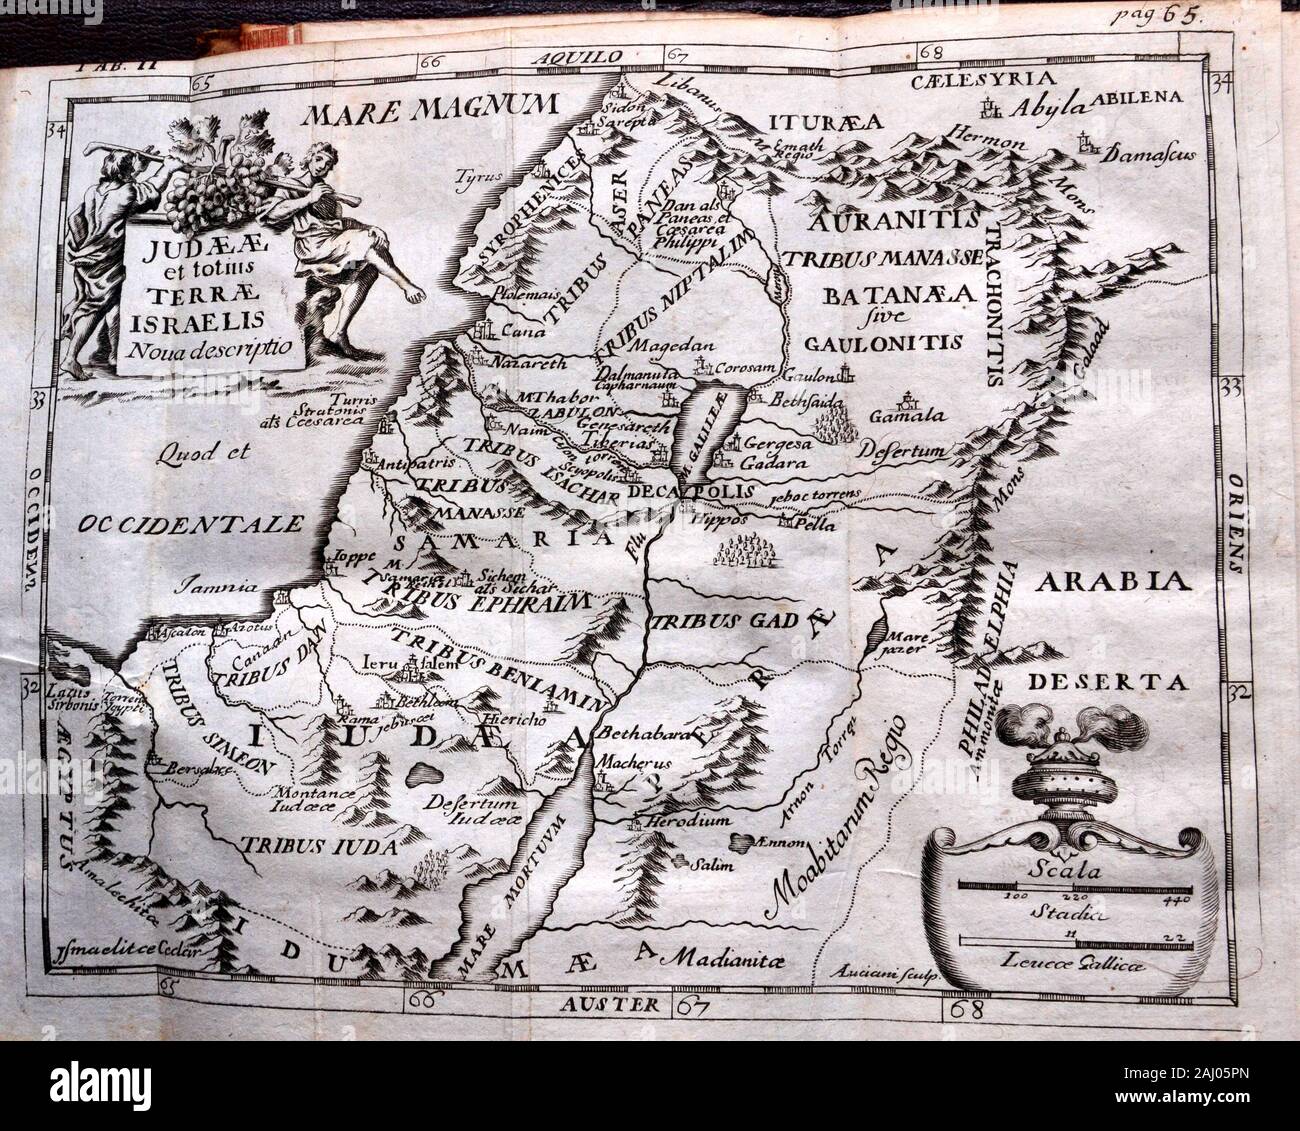 pag 65.
TAB. II
65
66
AQUILO
67
68
34
34
MARE MAGNUM
CÆLESYRIA
Abyla
ABILENA
Damascus
Libanus
Sidon
Sarepta
ITURÆA
Emath
Regio
Hermon
Mons
Tyrus
SYROPHENICES
TRIBUS
ASER
PANEAS
Dan als
Paneas et
Cæsarea
Philippi
AURANITIS
TRIBUS MANASSE
BATANÆA
sive
GAULONITIS
TRACHONITIS
JUDÆÆ
et totius
TERRÆ
ISRAELIS
Noua descriptio
TRIBUS NIPTALIM
Ptolemais
Cana
Nazareth
Magedan
Dalmanuta
Capharnaum
Corosam
Gaulon
Bethsaida
Gamala
Galaad
33
33
Turris
Stratonis
als Cæsarea
MThabor
ZABULON
Naim
Genesareth
Tiberias
M. GALILEÆ
Gergesa
Gadara
Desertum
Quod et
OCCIDENTALE
OCCIDENS
ORIENS
Antipatris
TRIBUS ISACHAR
Scyopolis
DECAPOLIS
Jeboc torrens
Hippos
Pella
Mons
TRIBUS
MANASSE
SAMARIA
Flu
Ioppe
M.
Samaria
Sichem
als Sichar
TRIBUS EPHRAIM
Jamnia
TRIBUS GAD
ARABIA
DESERTA
Mare
jazer
PHILADELPHIA
Ammonitæ
Ascalon
Azotus
Canaan
TRIBUS DAN
TRIBUS BENIAMIN
Ierusalem
Bethleem
Rama
Jebus
Hiericho
32
32
Lacus
Sirbonis
Torrens
Ægypti
TRIBUS SIMEON
IUDÆA
Bethabara
Macherus
PERÆA
ÆGYPTUS
Bersabee
Montanæ
Iudææ
Desertum
Iudææ
Herodium
Arnon Torrens
Moabitarum Regio
TRIBUS IUDA
Ænnon
Salim
MARE MORTUUM
Amalechitæ
Jsmaelitæ Cedar
IDUMÆA
Madianitæ
Auciani sculp.
Scala
100 220 440
Stadia
11 22
Leucæ Gallicæ
65
66
AUSTER
67
68
alamy
Image ID: 2AJ05PN
www.alamy.com